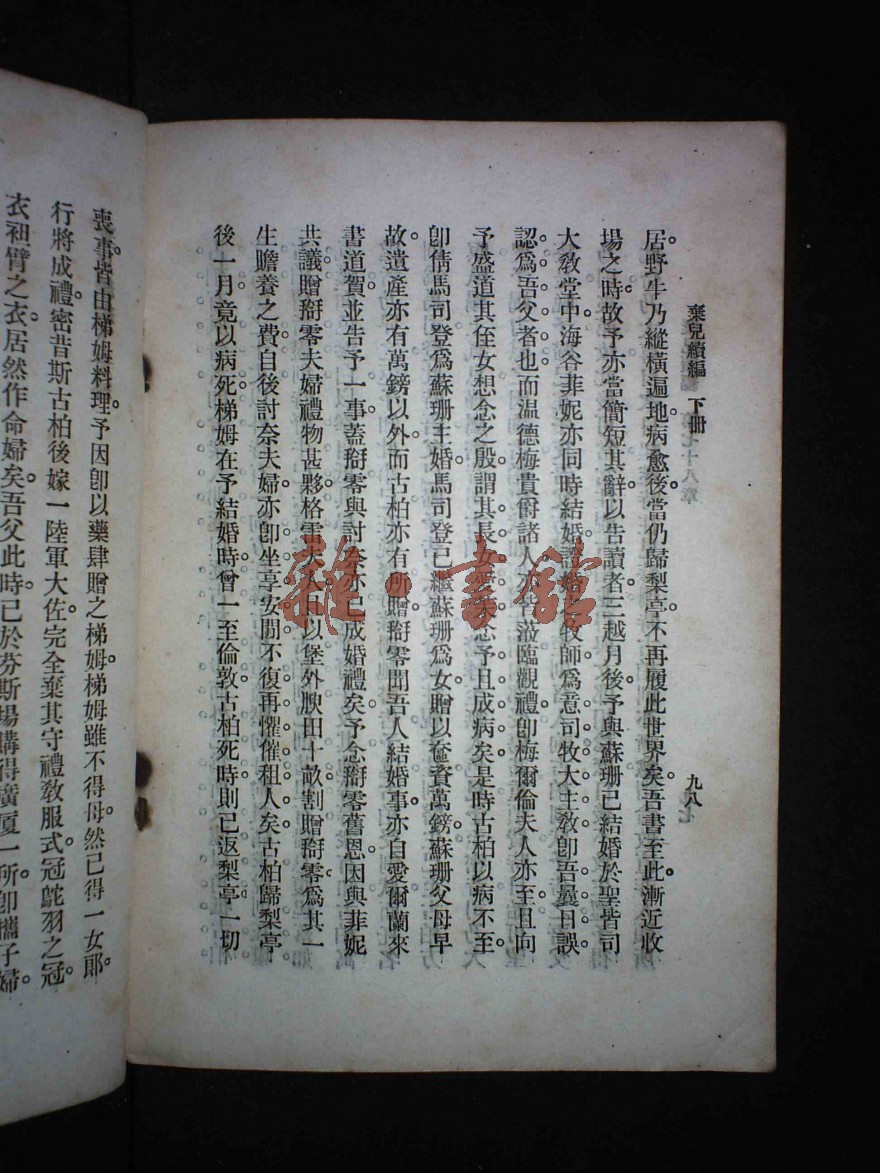 棄兒續編 下冊
九八
居野牛乃縱橫遍地。病愈後當仍歸梨亭不再履此世界矣。吾書至此漸近收
場之時。故予亦當簡短其辭以告讀者。三越月後予與蘇珊已結婚於聖皆司
大教堂中。海谷菲妮亦同時結婚。證婚之牧師爲意司牧大主教卽吾曩日誤
認爲吾父者也。而温德梅貴爵諸人亦皆蒞臨觀禮。卽梅爾倫夫人亦至。且向
予盛道其侄女想念之殷。謂其長女愛予且成病矣。是時古柏以病不至。
卽倩馬司登爲蘇珊主婚。馬司登已繼蘇珊爲女贈以奩資萬鎊。蘇珊父母早
故。遺產亦有萬鎊以外。而古柏亦有所贈。搿零聞吾人結婚事。亦自愛爾蘭來
書道賀。並告予一事。蓋搿零與討奈亦已成婚禮矣。予念搿零舊恩。因與菲妮
共議贈搿零夫婦禮物甚夥。格雷夫人且以堡外腴田十畝割贈搿零爲其一
生贍養之費。自後討奈夫婦亦卽坐享安閒不復再懼催租人矣。古柏歸梨亭
後一月。竟以病死。梯姆在予結婚時曾一至倫敦。古柏死時則已返梨亭。一切
喪事皆由梯姆料理。予因卽以藥肆贈之梯姆。梯姆雖不得母。然已得一女郞。
行將成禮。密昔斯古柏後嫁一陸軍大佐。完全棄其守禮教服式冠鴕羽之冠。
衣袒臂之衣。居然作命婦矣。吾父此時已於芬斯場購得廣厦一所。卽攜子婦。
雜書館